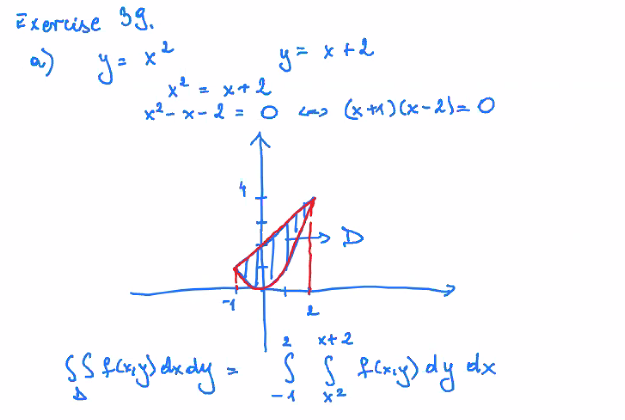 Exercise 39.
a) y = x² y = x + 2
x² = x + 2
x² - x - 2 = 0 <=> (x+1)(x-2) = 0
4
D
-1 2
∫∫_D f(x,y) dxdy = ∫_{-1}^{2} ∫_{x²}^{x+2} f(x,y) dy dx